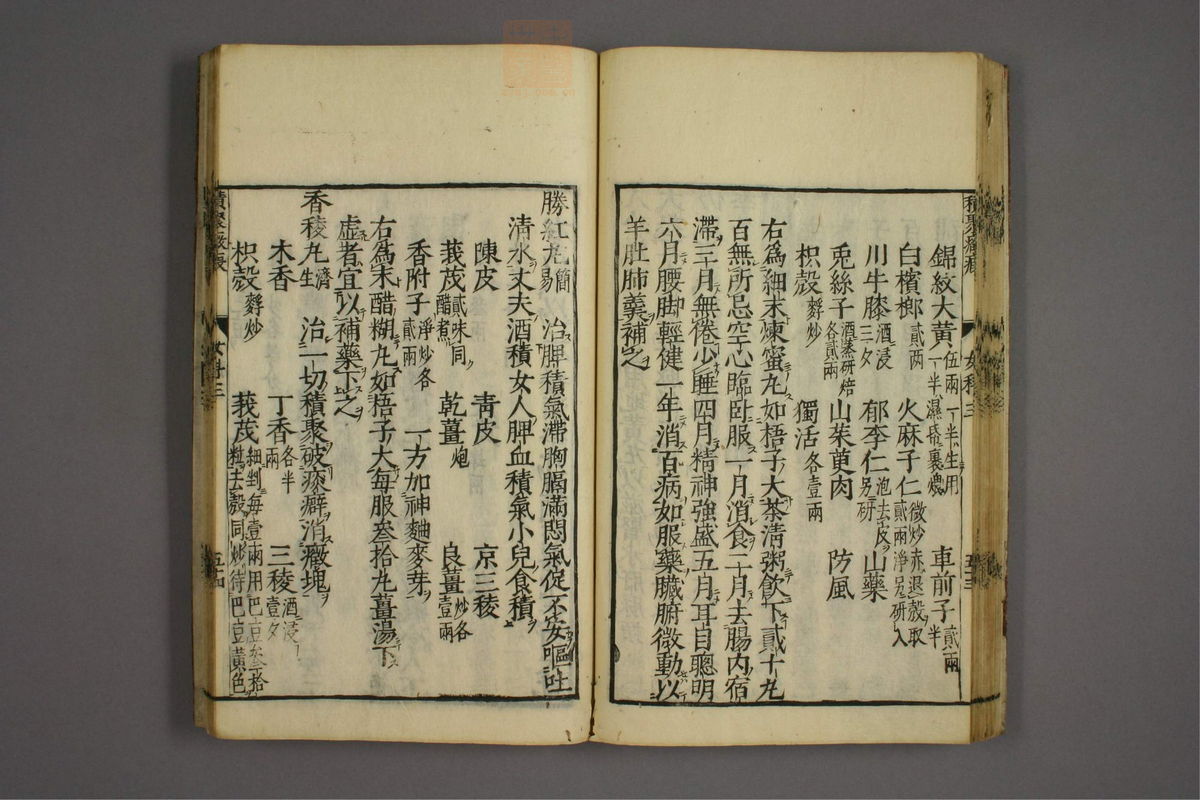 錦紋大黄 伍兩一半生用一半濕昏裹煨 車前子 貳兩半
白檳榔 貳两 火麻子仁 微炒赤退殼取貳兩淨另研入
川牛膝 酒浸三夕 郁李仁 泡去皮另研 山藥
兎絲子 酒蒸研焙各貳兩 山茱萸肉 防風
枳殼 麸炒 獨活 各壹兩
右爲細末煉蜜丸如梧子大茶清粥飲下貳十丸
百無所忌空心臨卧服一月消食二月去腸内宿
滯三月無倦少睡四月精神強盛五月耳目聰明
六月腰脚輕健一年消百病如服藥臟腑微動以
羊肚肺羹補之
積聚癥瘕 女科三 五十三
勝紅丸 簡易 治脾積氣滯胸膈滿悶氣促不安嘔吐
清水丈夫酒積女人脾血積氣小兒食積
陳皮 青皮 京三稜
莪茂 貳味同醋煮 乾薑 炮 良薑 炒各壹兩
香附子 淨炒各貳兩 一方加神麯麥芽
右爲末醋糊丸如梧子大每服叁拾丸薑湯下
虚者宜以補藥下之
香稜丸 濟生 治一切積聚破痰癖消癥塊
木香 丁香 各半兩 三稜 酒浸壹夕
枳殼 麸炒 莪茂 細剉每壹兩用巴豆叁拾粒去殼同炒待巴豆黄色
積聚癥瘕 女科三 五十四